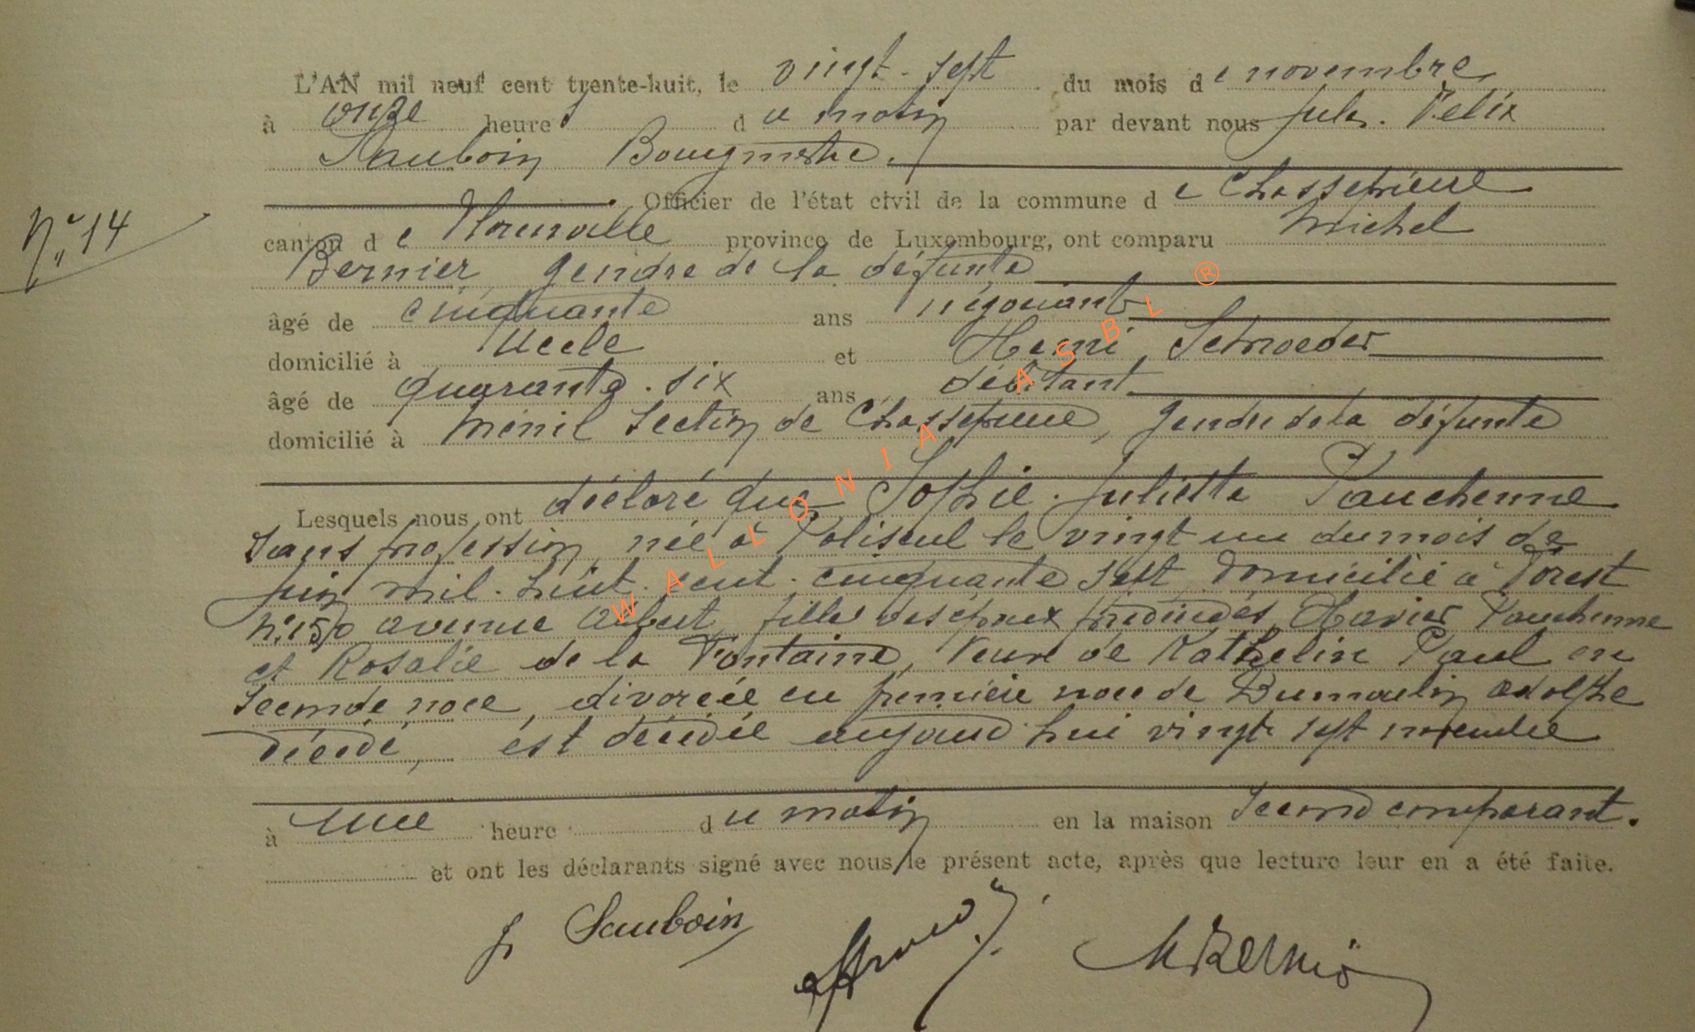 L'AN mil neuf cent trente-huit, le vingt-sept du mois de novembre
à onze heures du matin par devant nous Jules-Félix
Sauboin Bourgmestre.
Officier de l'état civil de la commune de Chassepierre
N° 14
canton de Florenville province de Luxembourg, ont comparu Michel
Bernier, gendre de la défunte
âgé de cinquante ans négociant
domicilié à Uccle et Henri Schroeder
âgé de quarante-six ans débitant
domicilié à Ménil section de Chassepierre, gendre de la défunte
Lesquels nous ont déclaré que Sophie-Juliette Pauchenne
sans profession, née à Paliseul le vingt un du mois de
juin mil-huit-cent-cinquante sept domicilié à Forest
n° 150 avenue Albert, fille des époux prédécédés Xavier Pauchenne
et Rosalie de la Fontaine, Veuve de Kathelin Paul en
seconde noce, divorcée en première noce de Dumoulin Adolphe
décédé, est décédée aujourd'hui vingt sept novembre
à une heure du matin en la maison second comparant.
et ont les déclarants signé avec nous le présent acte, après que lecture leur en a été faite.
J. Sauboin
M Bernier
WALLONIA ASBL ®